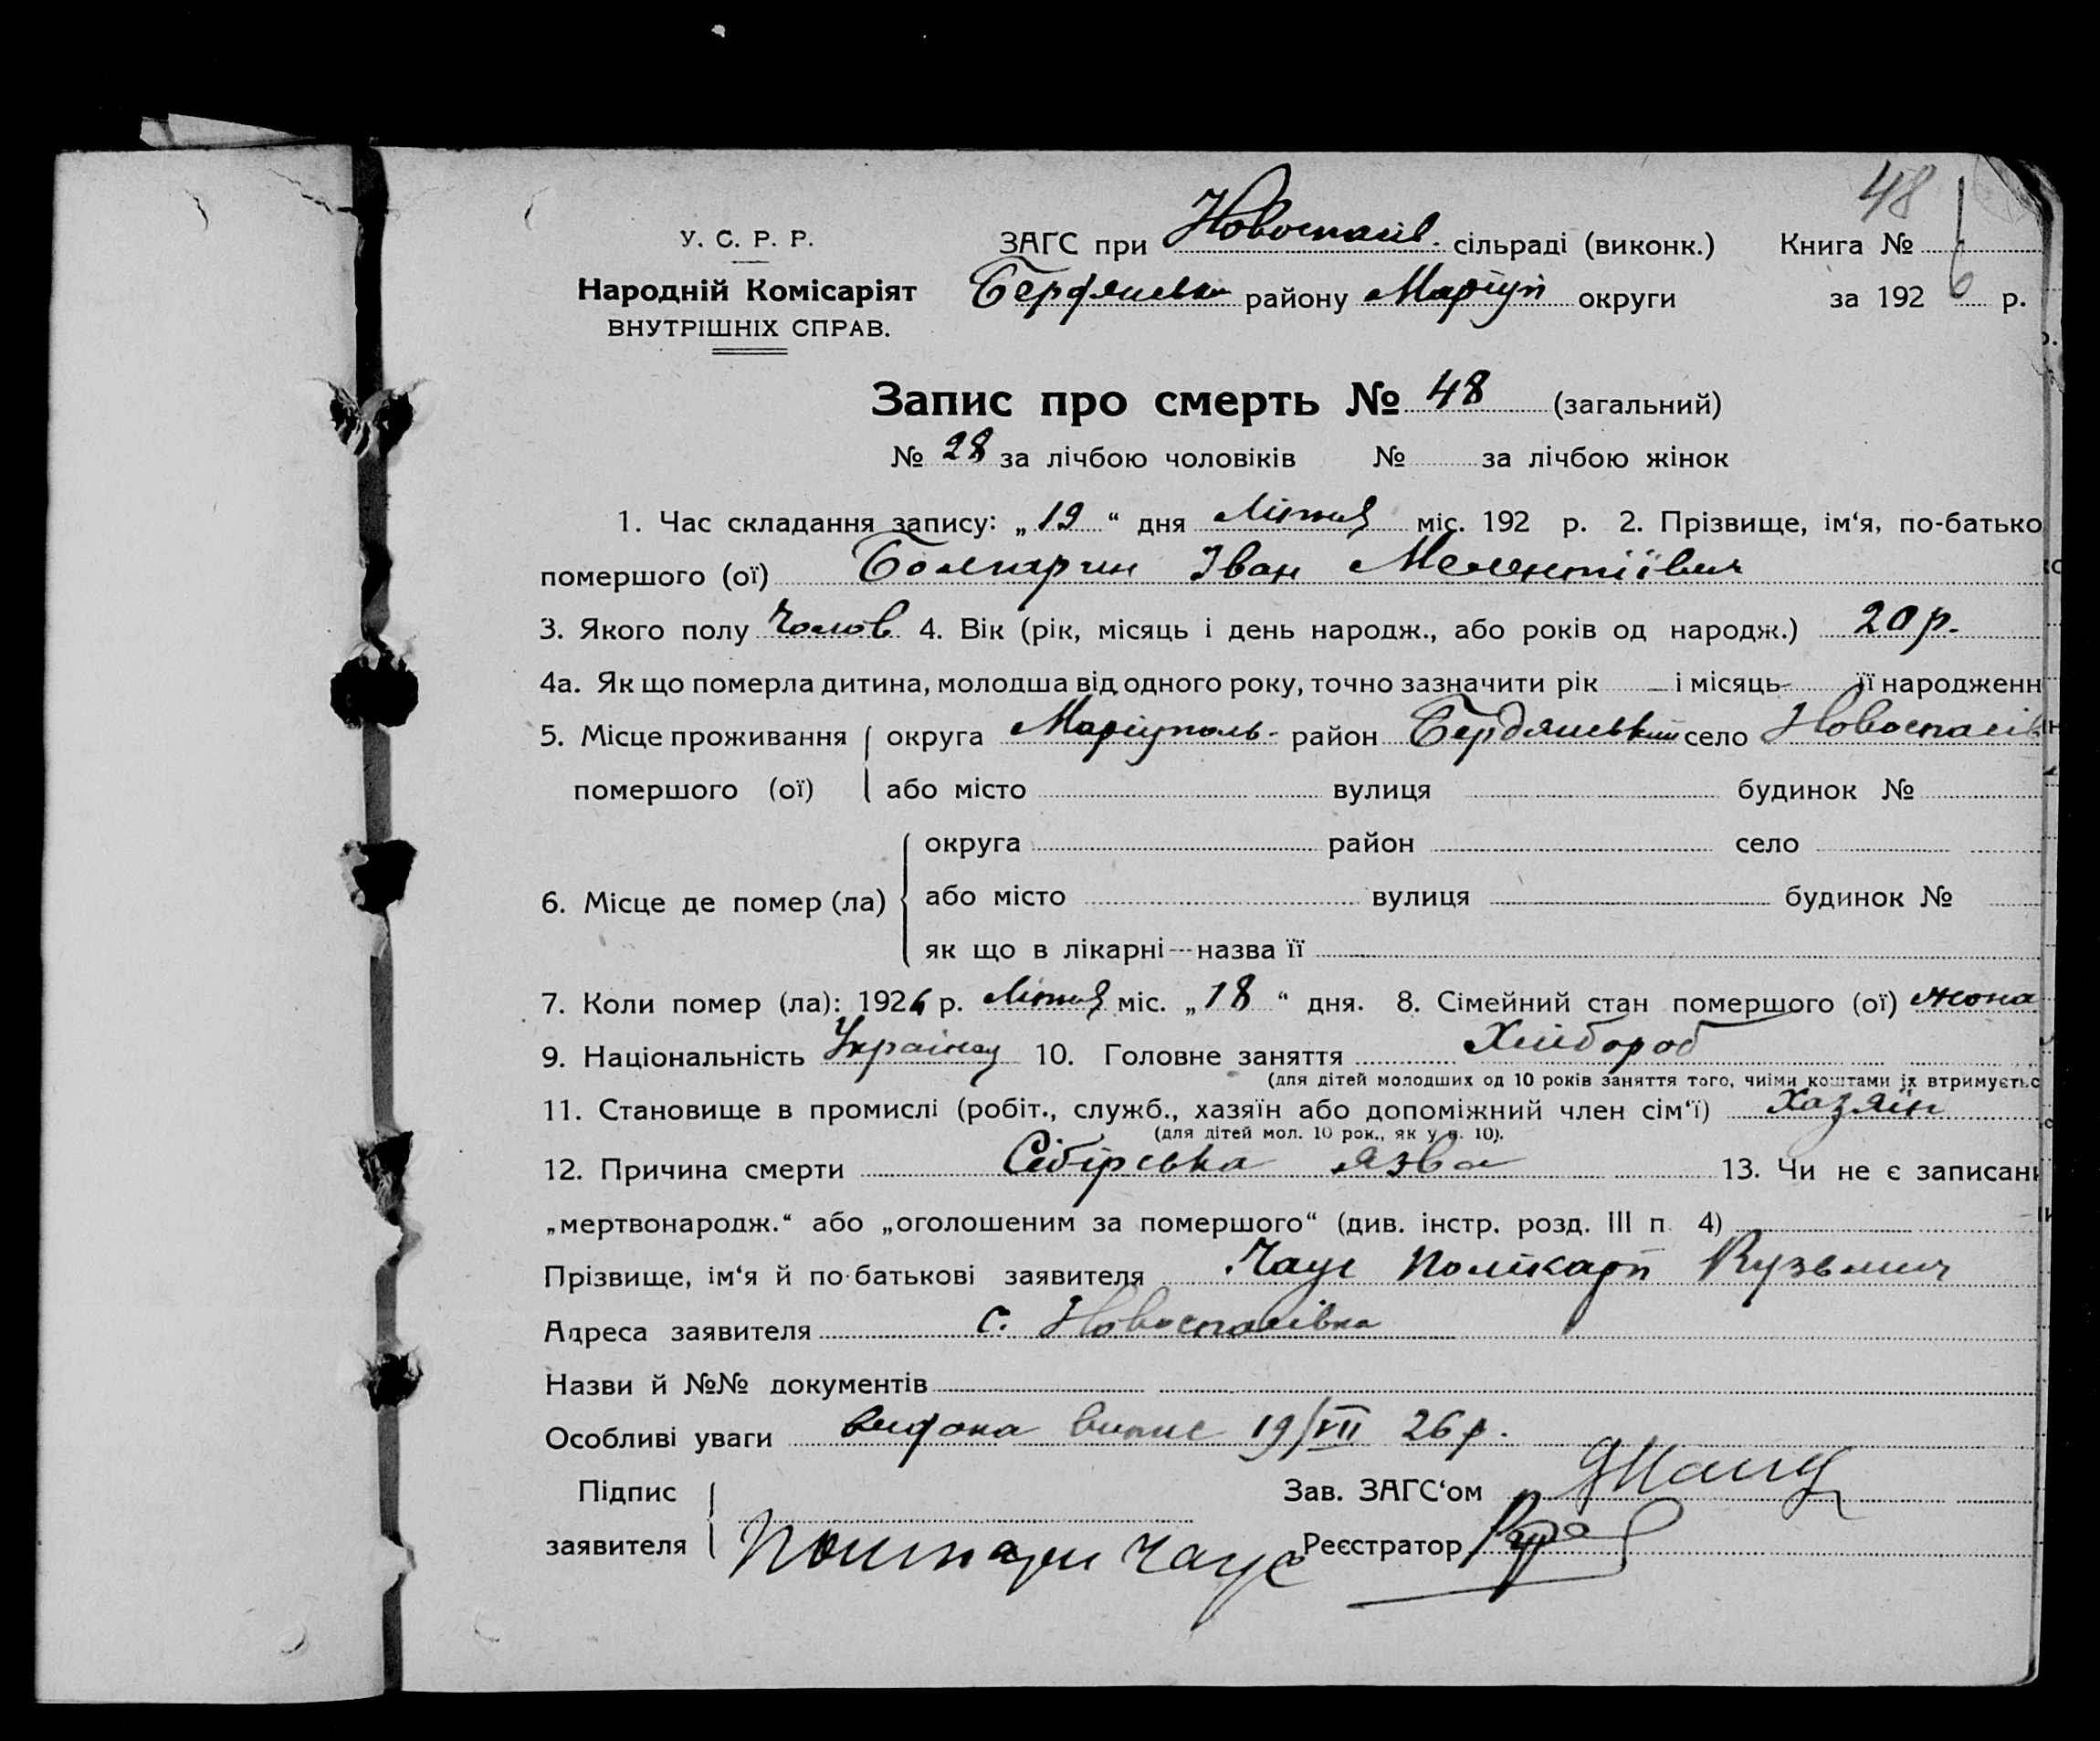 48
У. С. Р. Р.
Народній Комісаріят
ВНУТРІШНІХ СПРАВ.
ЗАГС при Новоспасів. сільраді (виконк.) Книга №
Бердянськ району Маріуп округи за 192 6 р.
Запис про смерть № 48 (загальний)
№ 28 за лічбою чоловіків № за лічбою жінок
1. Час складання запису: „19“ дня Липня міс. 192 р. 2. Прізвище, ім‘я, по-батько
помершого (ої) Іван Мелентіївич
3. Якого полу Чолов 4. Вік (рік, місяць і день народж., або років од народж.) 20 р.
4а. Як що померла дитина, молодша від одного року, точно зазначити рік — і місяць її народженн
5. Місце проживання округа Маріуполь- район Бердянський село Новоспасів
помершого (ої) або місто вулиця будинок №
округа район село
6. Місце де помер (ла) або місто вулиця будинок №
як що в лікарні---назва її
7. Коли помер (ла): 1926 р. Липня міс. „18“ дня. 8. Сімейний стан помершого (ої) жона
9. Національність Українец 10. Головне заняття Хлібороб
(для дітей молодших од 10 років заняття того, чиїми коштами їх втримуєтьс
11. Становище в промислі (робіт., служб., хазяїн або допоміжний член сім‘ї) Хазяїн
(для дітей мол. 10 рок., як у п. 10).
12. Причина смерти Сібірська язва 13. Чи не є записан
„мертвонародж.“ або „оголошеним за помершого“ (див. інстр. розд. III п 4)
Прізвище, ім‘я й по-батькові заявителя Чаус Полікарп Кузьмич
Адреса заявителя с. Новоспасівка
Назви й №№ документів
Особливі уваги видана випис 19/VII 26 р.
Підпис Зав. ЗАГС‘ом
заявителя Чаус Реєстратор